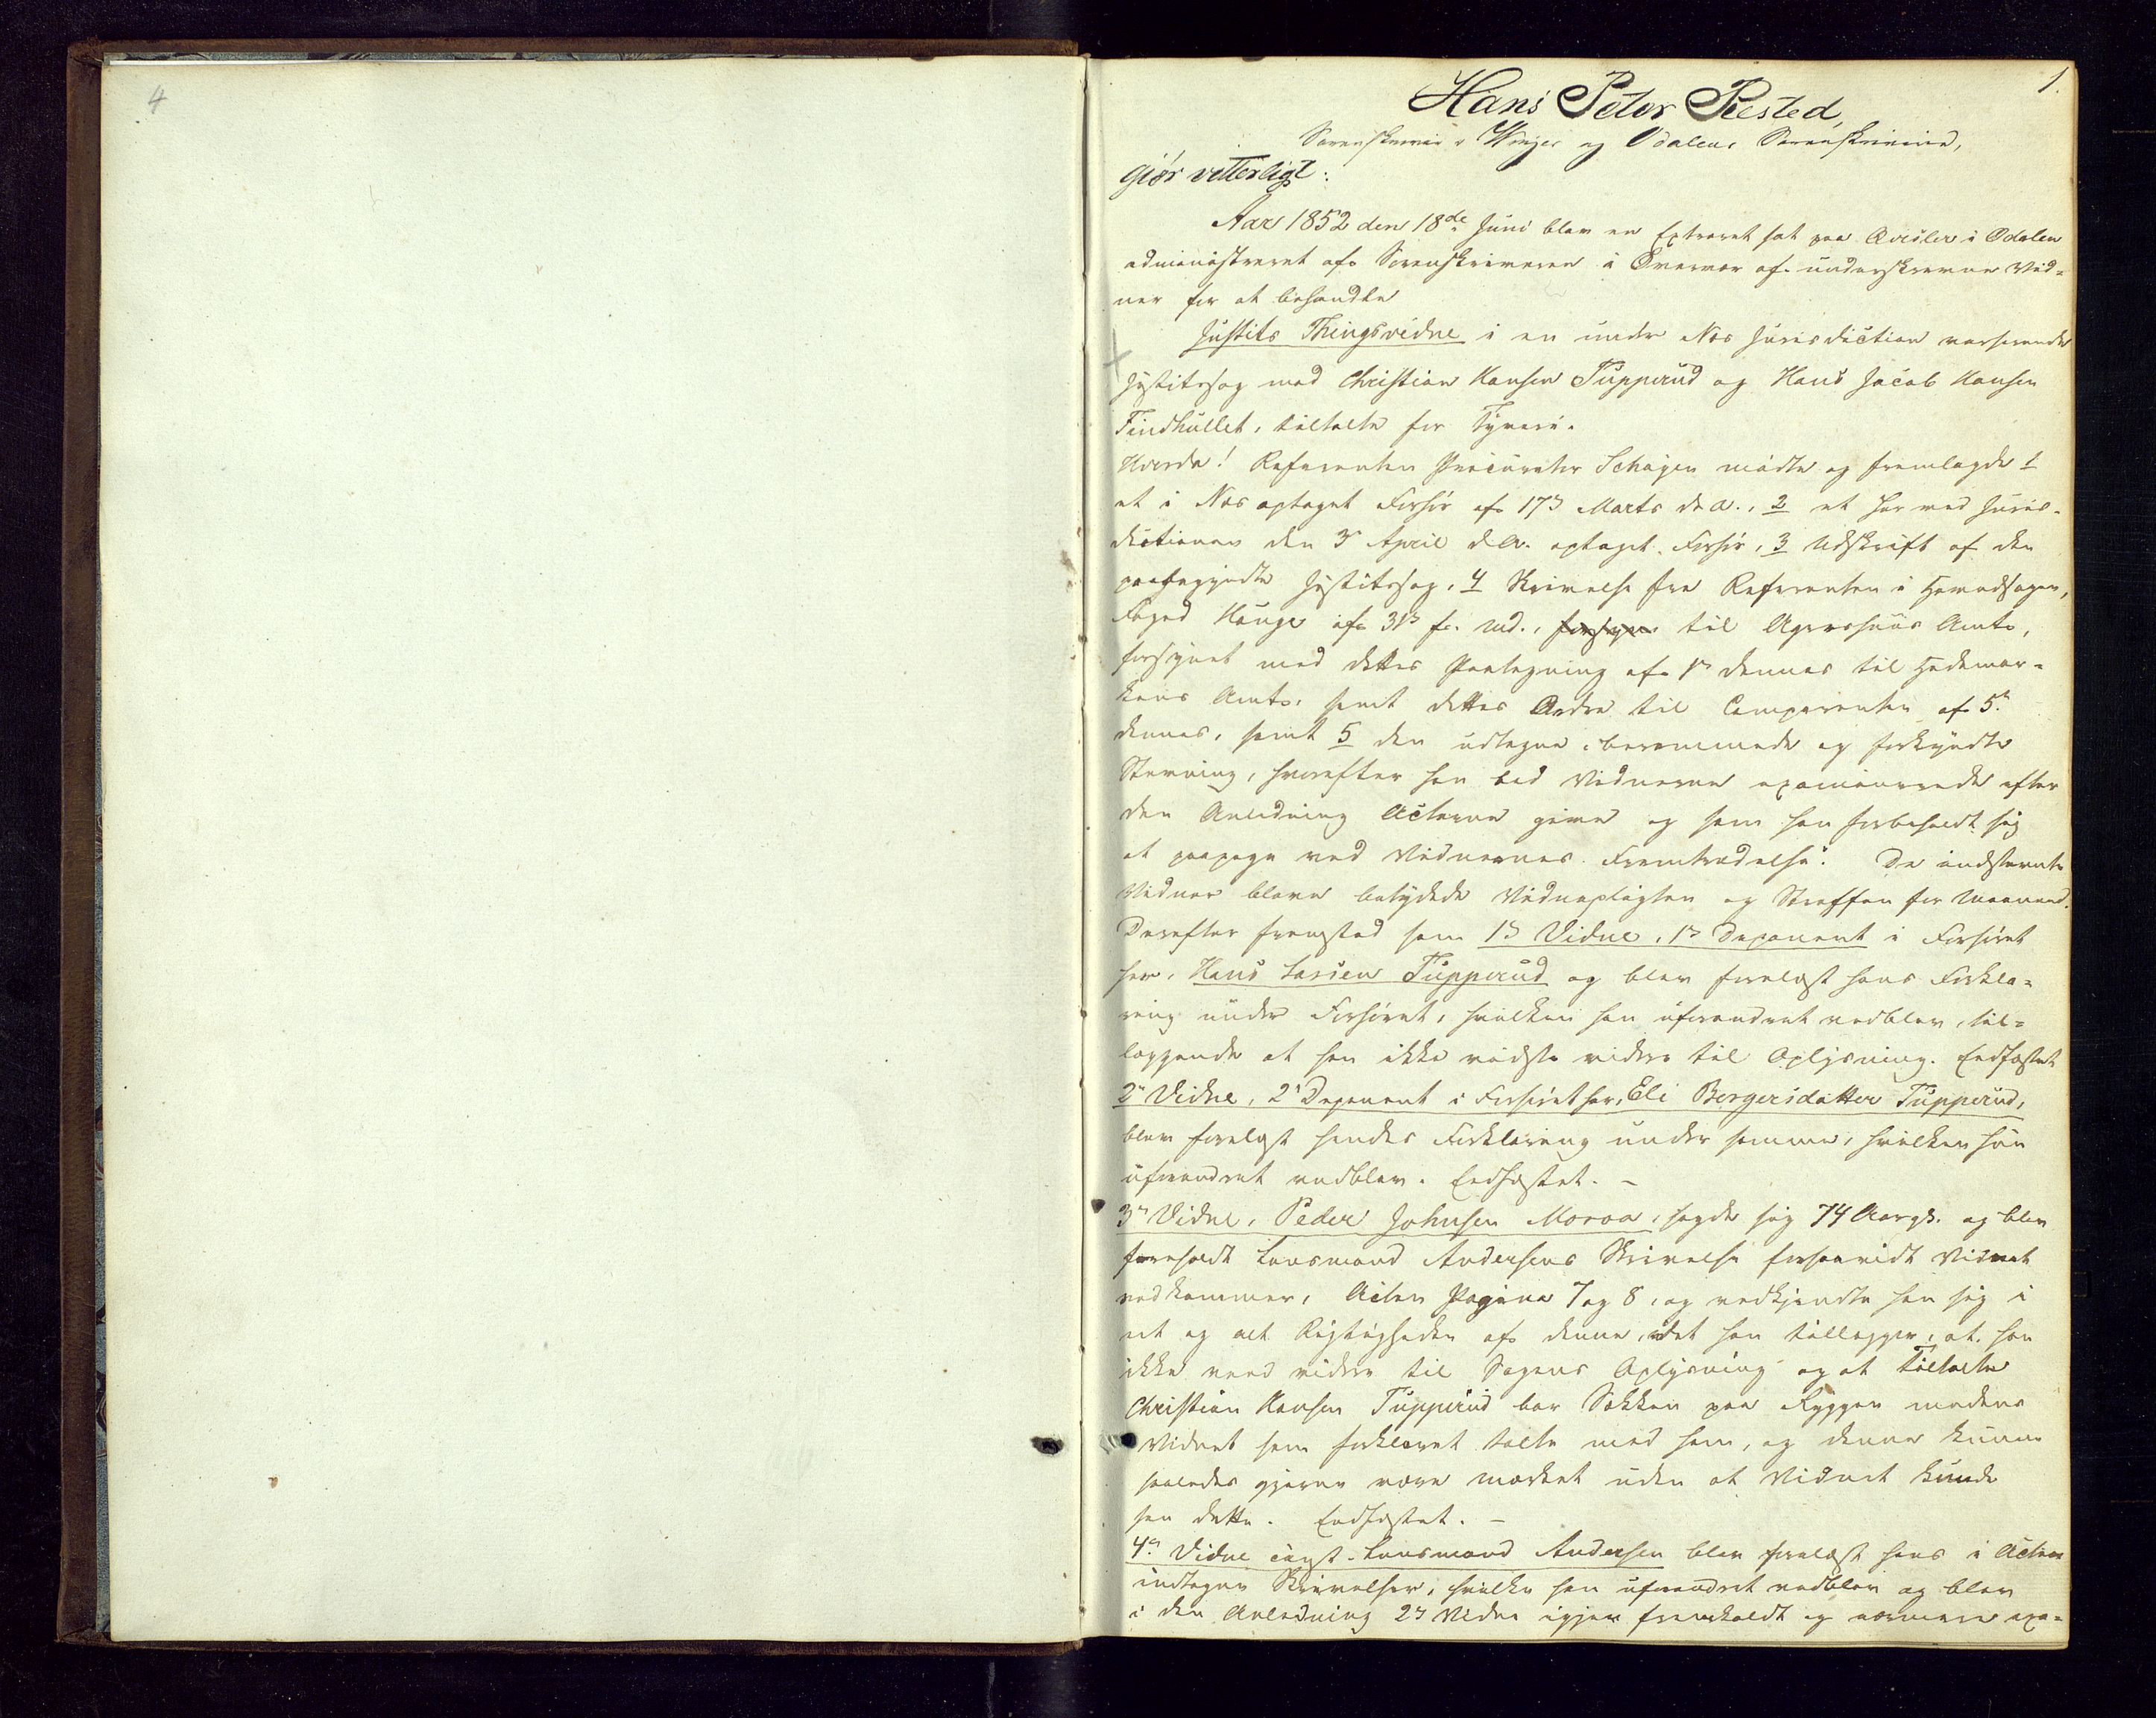 4
1.
Hans Peter Tiested,
Sorenskriver i Winger og Odalens Sorenskriverie,
giør vitterligt:
Aar 1852 den 18de Juni blev en Extraret sat paa i Odalen
administreret af Sorenskriveren i Overvær af underskrevne Vid=
ner for at behandle
Justits Thingsvidne i en under Næs Jurisdiction verserende
Justitssag mod Christian Hansen Tupperud og Hans Jacob Hansen
Findhullet, tiltalte for Tyveri.
Hvorda! Referenten Procurator Schøyen mødte og fremlagde 1
et i Næs optaget Forhør af 17d Marts d. A., 2 et her ved Juris-
dictionen den 3d April d. A. optaget Forhør, 3 Udskrift af den
paabegyndte Justitssag, 4 Skrivelse fra Referenten i Hovedsagen,
Foged Hauge af 31d f. Md., til Agershuus Amt,
forsynet med dettes Paategning af 1d dennes til Hedemar=
kens Amt, samt dettes Ordre til Comparenten af 5d
dennes, samt 5 den udtagne, berammede og forkyndte
Stevning, hvorefter han bad Vidnerne examinerede efter
den Anledning Acterne give og som han forbeholdt sig
at paapege ved Vidnernes Fremtrædelse. De indstevnte
Vidner bleve betydede Vidnepligten og Straffen for Meeneed.
Derefter fremstod som 1d Vidne, 1d Deponent i Forhøret
her, Hans Larsen Tupperud og blev forelæst hans Forkla=
ring under Forhøret, hvilken han uforandret vedblev, til=
læggende at han ikke vidste videre til Oplysning. Eedfæstet
2d Vidne, 2d Deponent i Forhøret her, Eli Bergersdatter Tupperud,
blev forelæst hendes Forklaring under samme, hvilken hun
uforandret vedblev. Eedfæstet. –
3d Vidne, Peder Johnsen Moroa, sagde sig 74 Aar gl. og blev
foreholdt Lensmand Andersens Skrivelse forsaavidt Vidnet
vedkommer, Acten Pagina 7 og 8, og vedkjendte han sig i
et og alt Rigtigheden af denne, idet han tillægger, at han
ikke veed videre til Sagens Oplysning og at Tiltalte
Christian Hansen Tupperud bar Sækken paa Ryggen medens
Vidnet som forklaret talte med ham, og denne kunne
saaledes gjerne være mærket uden at Vidnet kunde
see dette. Eedfæstet. –
4d Vidne const. Lensmand Andersen blev forelæst hans i Acten
indtagne Skrivelser, hvilke han uforandret vedblev og blev
i den Anledning 2d Vidne igjen fremkaldt og nærmere exa=